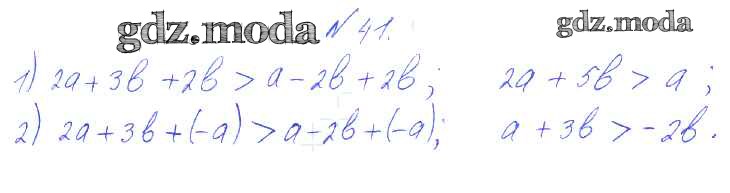 gdz.moda № 41. gdz.moda
1) 2a + 3b + 2b > a - 2b + 2b; 2a + 5b > a;
2) 2a + 3b + (-a) > a - 2b + (-a); a + 3b > -2b.